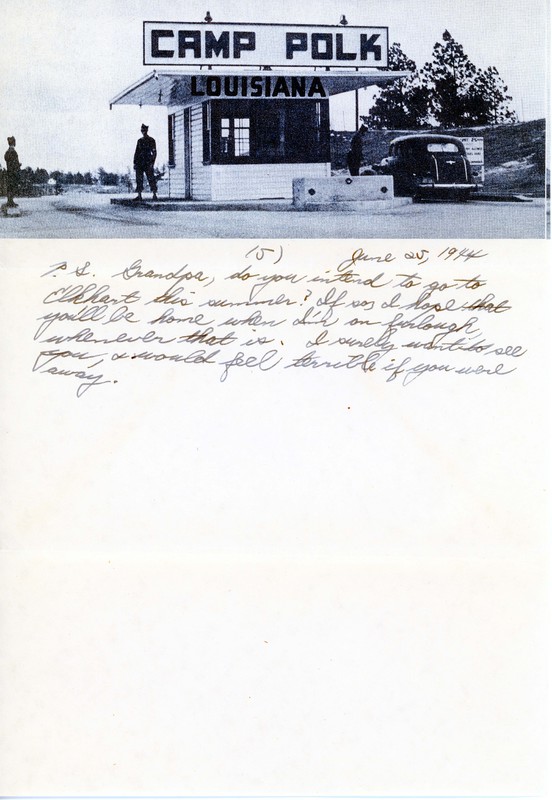 CAMP POLK
LOUISIANA
(5) June 25, 1944
P.S. Grandpa, do you intend to go to
Elkhart this summer? If so, I hope that
you'll be home when I'm on furlough,
whenever that is. I surely want to see
you, & would feel terrible if you were
away.